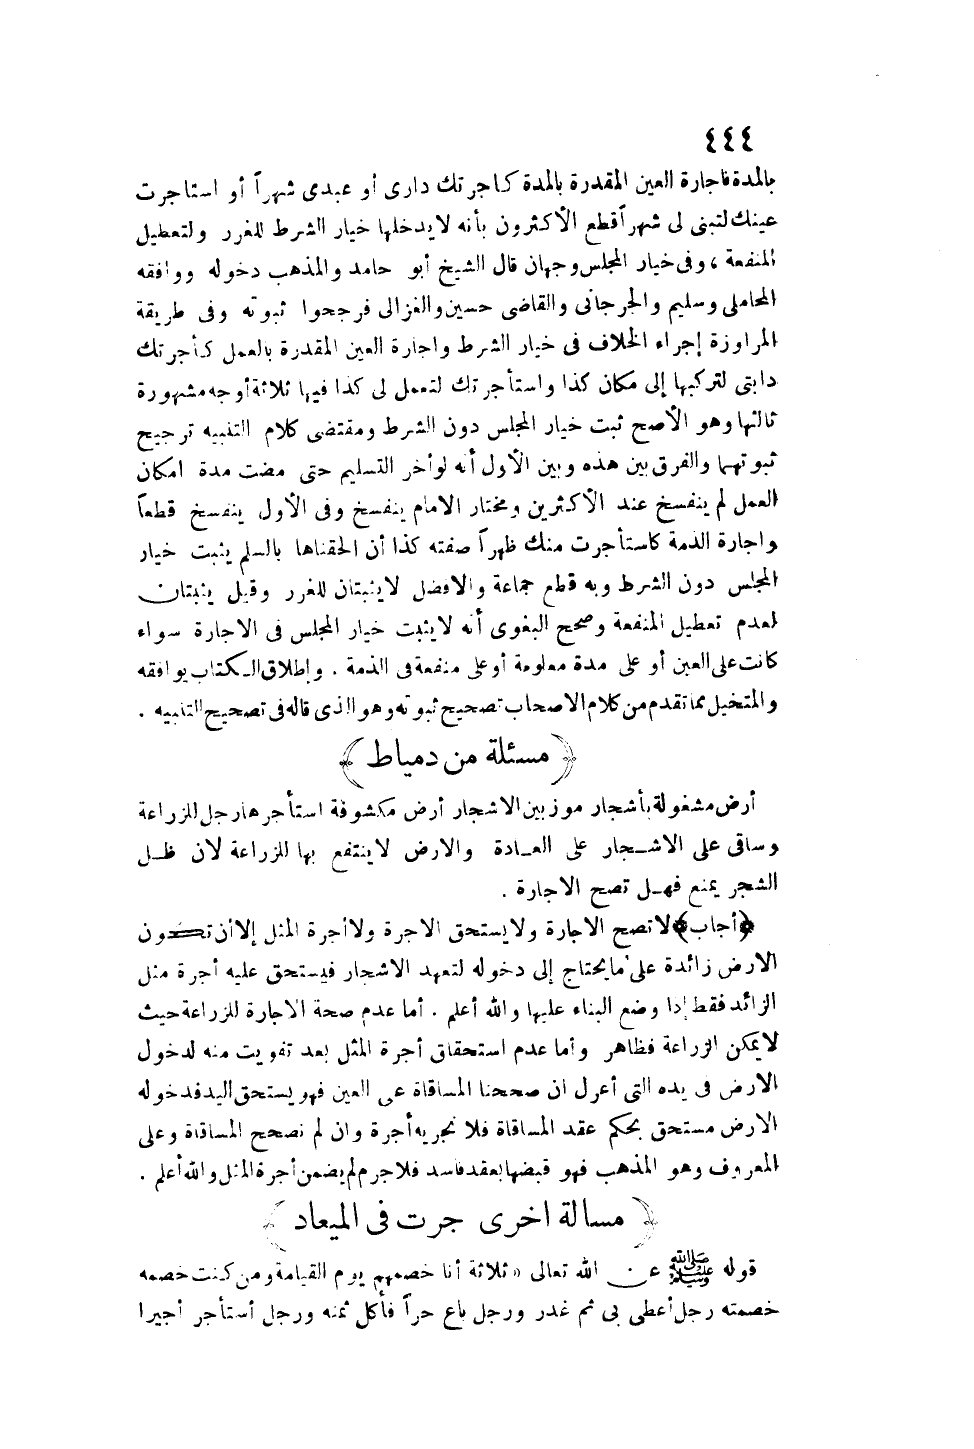 ٤٤٤
بالمدة فاجارة العين المقدرة بالمدة كاجرتك دارى أو عبدى شهراً أو استاجرت
عينك لتبنى لى شهراً قطع الأكثرون بأنه لا يدخلها خيار الشرط للغرر ولتعطيل
المنفعة ، وفى خيار المجلس وجهان قال الشيخ أبو حامد والمذهب دخوله ووافقه
المحاملى وسليم والجرجانى والقاضى حسين والغزالى فرجحوا ثبوته وفى طريقة
المراوزة إجراء الخلاف فى خيار الشرط واجارة العين المقدرة بالعمل كأجرتك
دابتى لتركبها إلى مكان كذا واستأجرتك لتعمل لى كذا فيها ثلاثة أوجه مشهورة
ثالثها وهو الأصح ثبت خيار المجلس دون الشرط ومقتضى كلام التنبيه ترجيح
ثبوتهما والفرق بين هذه وبين الأول أنه لو أخر التسليم حتى مضت مدة امكان
العمل لم ينفسخ عند الأكثرين ومختار الامام ينفسخ وفى الأول ينفسخ قطعاً
واجارة الذمة كاستأجرت منك ظهراً صفته كذا أن الحقناها بالسلم يثبت خيار
المجلس دون الشرط وبه قطع جماعة والافضل لا يثبتان للغرر وقيل يثبتان
لعدم تعطيل المنفعة وصحح البغوى أنه لا يثبت خيار المجلس فى الاجارة سواء
كانت على العين أو على مدة معلومة أو على منفعة فى الذمة . وإطلاق الكتاب يوافقه
والمتخيل مما تقدم من كلام الاصحاب تصحيح ثبوته وهو الذى قاله فى تصحيح التنبيه .
﴿ مسئلة من دمياط ﴾
أرض مشغولة بأشجار موز بين الاشجار أرض مكشوفة استأجرها رجل للزراعة
وساقى على الاشجار على العادة والارض لا ينتفع بها للزراعة لان ظل
الشجر يمنع فهل تصح الاجارة .
﴿أجاب﴾ لا تصح الاجارة ولا يستحق الاجرة ولا أجرة المثل إلا أن تكون
الارض زائدة على ما يحتاج إلى دخوله لتعهد الاشجار فيستحق عليه أجرة مثل
الزائد فقط إذا وضع البناء عليها والله أعلم . أما عدم صحة الاجارة للزراعة حيث
لا يمكن الزراعة فظاهر وأما عدم استحقاق أجرة المثل بعد تفويت منه لدخول
الارض فى يده التى أعرل ان صححنا المساقاة على العين فهو يستحق اليد فدخوله
الارض مستحق بحكم عقد المساقاة فلا نجر به أجرة وان لم نصحح المساقاة وعلى
المعروف وهو المذهب فهو قبضها بعقد فاسد فلا جرم لم يضمن أجرة المثل والله أعلم .
﴿ مسالة اخرى جرت فى الميعاد ﴾
قوله ﷺ عن الله تعالى « ثلاثة أنا خصمهم يوم القيامة ومن كنت خصمه
خصمته رجل أعطى بى ثم غدر ورجل باع حراً فأكل ثمنه ورجل أستأجر أجيرا